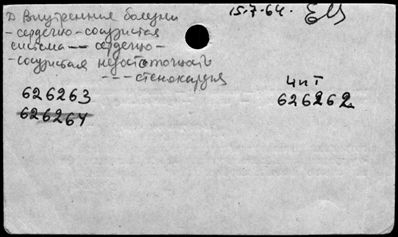 D Внутренние болезни
15.7.64.
- сердечно-сосудистая
система -- сердечно-
- сосудистая недостаточность
--- стенокардия
626263
626264
ЧиТ
626262